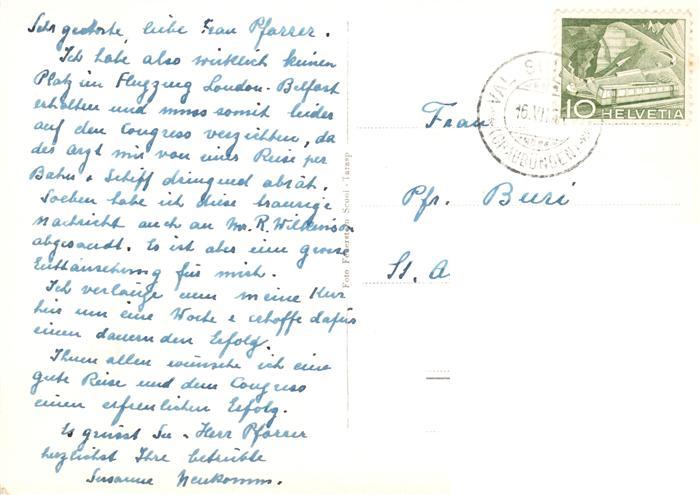 Sehr geehrte, liebe Frau Pfarrer.
Ich habe also wirklich keinen
Platz im Flugzeug London-Belfast
erhalten und muss somit leider
auf den Congress verzichten, da
der Arzt mir von einer Reise per
Bahn + Schiff dringend abrät.
Soeben habe ich diese traurige
Nachricht auch an Mr. R. Wilkinson
abgesandt. Es ist aber eine grosse
Enttäuschung für mich.
Ich verlänge nun meine Kur
hier um eine Woche & erhoffe dafür
einen dauernden Erfolg.
Ihnen allen wünsche ich eine
gute Reise und dem Congress
einen erfreulichen Erfolg.
Es grüsst Sie + Herr Pfarrer
herzlichst Ihre betrübte
Susanne Neukomm.
Foto Feuerstein Scuol - Tarasp
VAL S
16.VII
(GRAUBÜNDEN)
10 HELVETIA
Frau
Pfr. Buri
St. A